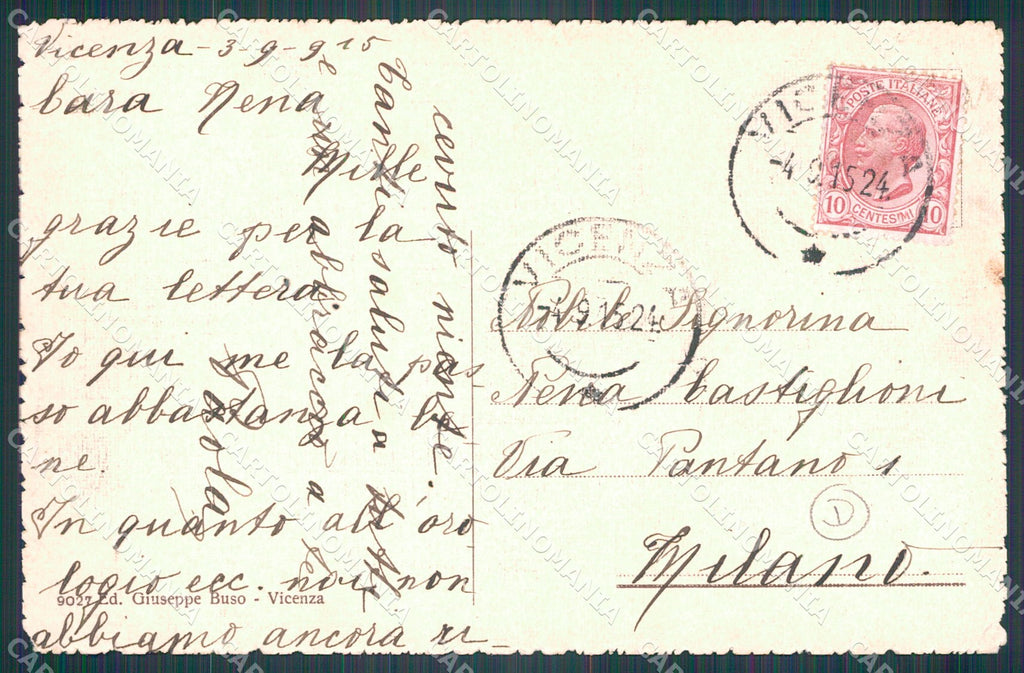 Vicenza - 3-9-915
Cara Nena
Mille
grazie per la
tua lettera.
Io qui me la pas-
so abbastanza be
ne.
In quanto all'oro
logio ecc. noi non
abbiamo ancora ri-
cevuto niente.
Tanti saluti a
abbraccio a te
Paola
9027 Ed. Giuseppe Buso - Vicenza
POSTE ITALIANE
10 CENTESIMI 10
-4.9.15 24
-4.9.15.24
Nobile Signorina
Nena Castiglioni
Via Pantano 1
Milano.
D
CARTOLINOMANIA